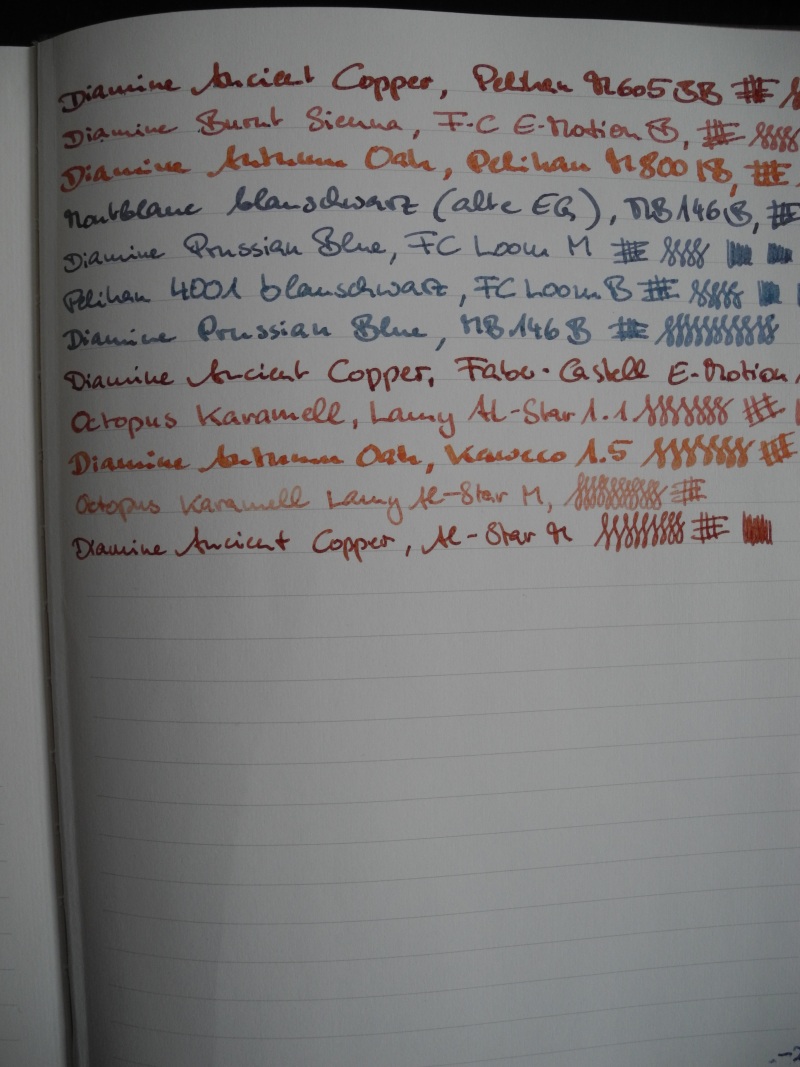 Diamine Ancient Copper, Pelikan M605 BB
Diamine Burnt Sienna, F-C E-Motion B,
Diamine Autumn Oak, Pelikan M800 IB,
Montblanc blauschwarz (alte EG), MB 146 B,
Diamine Prussian Blue, FC Loom M
Pelikan 4001 blauschwarz, FC Loom B
Diamine Prussian Blue, MB 146 B
Diamine Ancient Copper, Faber-Castell E-Motion
Octopus Karamell, Lamy Al-Star 1.1
Diamine Autumn Oak, Kaweco 1.5
Octopus Karamell Lamy Al-Star M,
Diamine Ancient Copper, Al-Star M